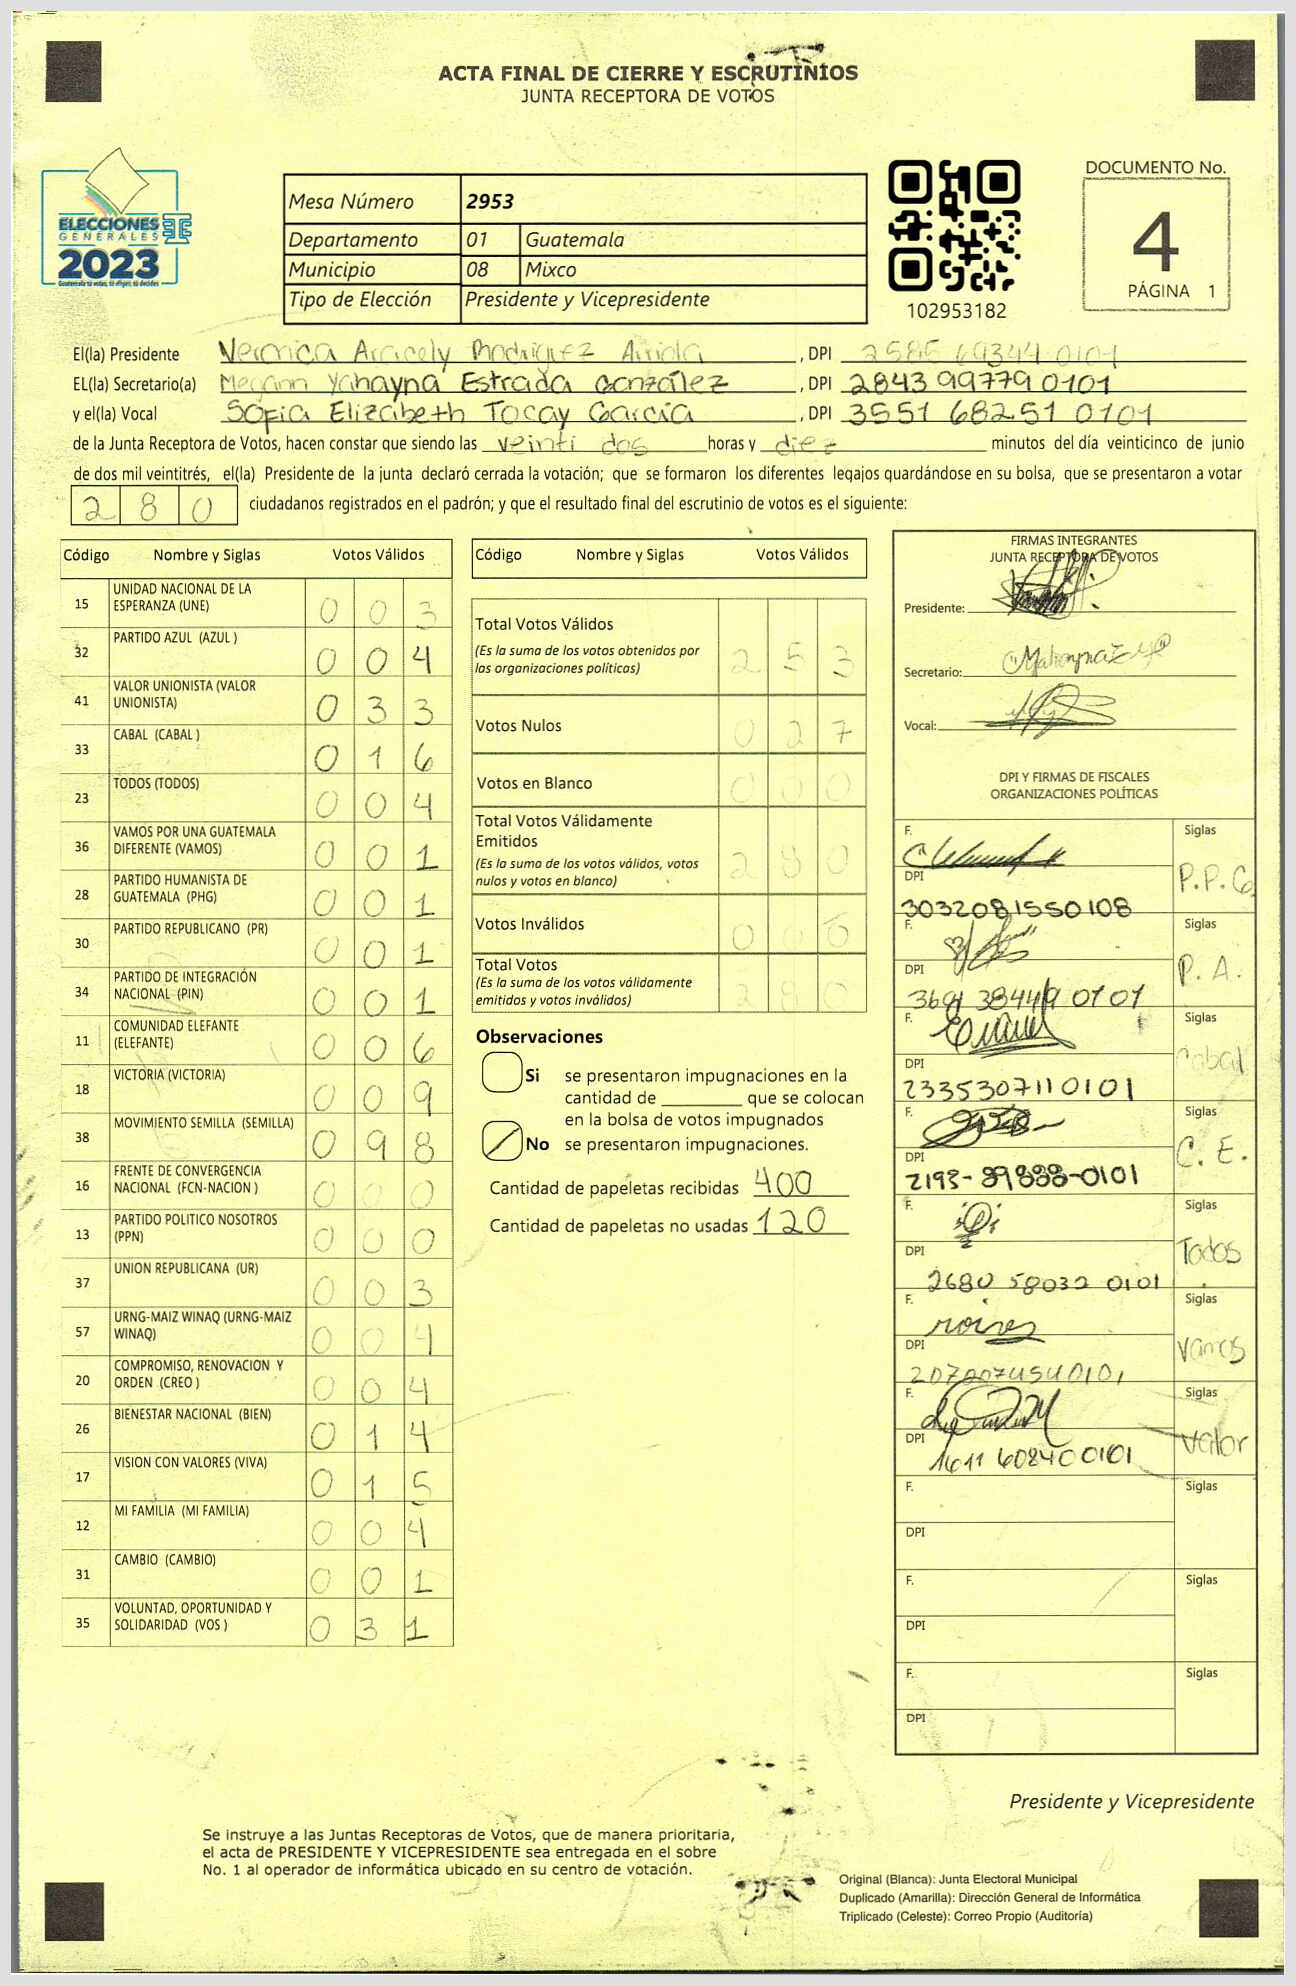 ACTA FINAL DE CIERRE Y ESCRUTINIOS
JUNTA RECEPTORA DE VOTOS
ELECCIONES
GENERALES
2023
Guatemala tú votas, tú eliges, tú decides
Mesa Número 2953
Departamento 01 Guatemala
Municipio 08 Mixco
Tipo de Elección Presidente y Vicepresidente
102953182
DOCUMENTO No.
4
PÁGINA 1
El(la) Presidente Veronica Aracely Rodriguez Arriola , DPI 2585 69344 0101
EL(la) Secretario(a) Megann Yahayna Estrada González , DPI 2843 99779 0101
y el(la) Vocal Sofia Elizabeth Tocay García , DPI 3551 68251 0101
de la Junta Receptora de Votos, hacen constar que siendo las veinti dos horas y diez minutos del día veinticinco de junio
de dos mil veintitrés, el(la) Presidente de la junta declaró cerrada la votación; que se formaron los diferentes legajos quardándose en su bolsa, que se presentaron a votar
280 ciudadanos registrados en el padrón; y que el resultado final del escrutinio de votos es el siguiente:
Código Nombre y Siglas Votos Válidos
15 UNIDAD NACIONAL DE LA ESPERANZA (UNE) 0 0 3
32 PARTIDO AZUL (AZUL ) 0 0 4
41 VALOR UNIONISTA (VALOR UNIONISTA) 0 3 3
33 CABAL (CABAL ) 0 1 6
23 TODOS (TODOS) 0 0 4
36 VAMOS POR UNA GUATEMALA DIFERENTE (VAMOS) 0 0 1
28 PARTIDO HUMANISTA DE GUATEMALA (PHG) 0 0 1
30 PARTIDO REPUBLICANO (PR) 0 0 1
34 PARTIDO DE INTEGRACIÓN NACIONAL (PIN) 0 0 1
11 COMUNIDAD ELEFANTE (ELEFANTE) 0 0 6
18 VICTORIA (VICTORIA) 0 0 9
38 MOVIMIENTO SEMILLA (SEMILLA) 0 9 8
16 FRENTE DE CONVERGENCIA NACIONAL (FCN-NACION ) 0 0 0
13 PARTIDO POLITICO NOSOTROS (PPN) 0 0 0
37 UNION REPUBLICANA (UR) 0 0 3
57 URNG-MAIZ WINAQ (URNG-MAIZ WINAQ) 0 0 4
20 COMPROMISO, RENOVACION Y ORDEN (CREO ) 0 0 4
26 BIENESTAR NACIONAL (BIEN) 0 1 4
17 VISION CON VALORES (VIVA) 0 1 5
12 MI FAMILIA (MI FAMILIA) 0 0 4
31 CAMBIO (CAMBIO) 0 0 1
35 VOLUNTAD, OPORTUNIDAD Y SOLIDARIDAD (VOS ) 0 3 1
Código Nombre y Siglas Votos Válidos
Total Votos Válidos 2 5 3
(Es la suma de los votos obtenidos por
las organizaciones políticas)
Votos Nulos 0 2 7
Votos en Blanco 0 0 0
Total Votos Válidamente
Emitidos 2 8 0
(Es la suma de los votos válidos, votos
nulos y votos en blanco)
Votos Inválidos 0 0 0
Total Votos 2 8 0
(Es la suma de los votos válidamente
emitidos y votos inválidos)
Observaciones
Si se presentaron impugnaciones en la
cantidad de ________ que se colocan
en la bolsa de votos impugnados
No se presentaron impugnaciones.
Cantidad de papeletas recibidas 400
Cantidad de papeletas no usadas 120
FIRMAS INTEGRANTES
JUNTA RECEPTORA DE VOTOS
Presidente:
Secretario:
Vocal:
DPI Y FIRMAS DE FISCALES
ORGANIZACIONES POLÍTICAS
F. Siglas
DPI P.P.G.
3032081550108
F. Siglas
DPI P.A.
3691 38449 0101
F. Siglas
DPI Cabal
2335307110101
F. Siglas
DPI C.E.
2193-89888-0101
F. Siglas
DPI Todos
2680 58032 0101
F. Siglas
DPI Vamos
2072074540101
F. Siglas
DPI Valor
1611 60840 0101
F. Siglas
DPI
F. Siglas
DPI
F. Siglas
DPI
Presidente y Vicepresidente
Se instruye a las Juntas Receptoras de Votos, que de manera prioritaria,
el acta de PRESIDENTE Y VICEPRESIDENTE sea entregada en el sobre
No. 1 al operador de informática ubicado en su centro de votación.
Original (Blanca): Junta Electoral Municipal
Duplicado (Amarilla): Dirección General de Informática
Triplicado (Celeste): Correo Propio (Auditoría)